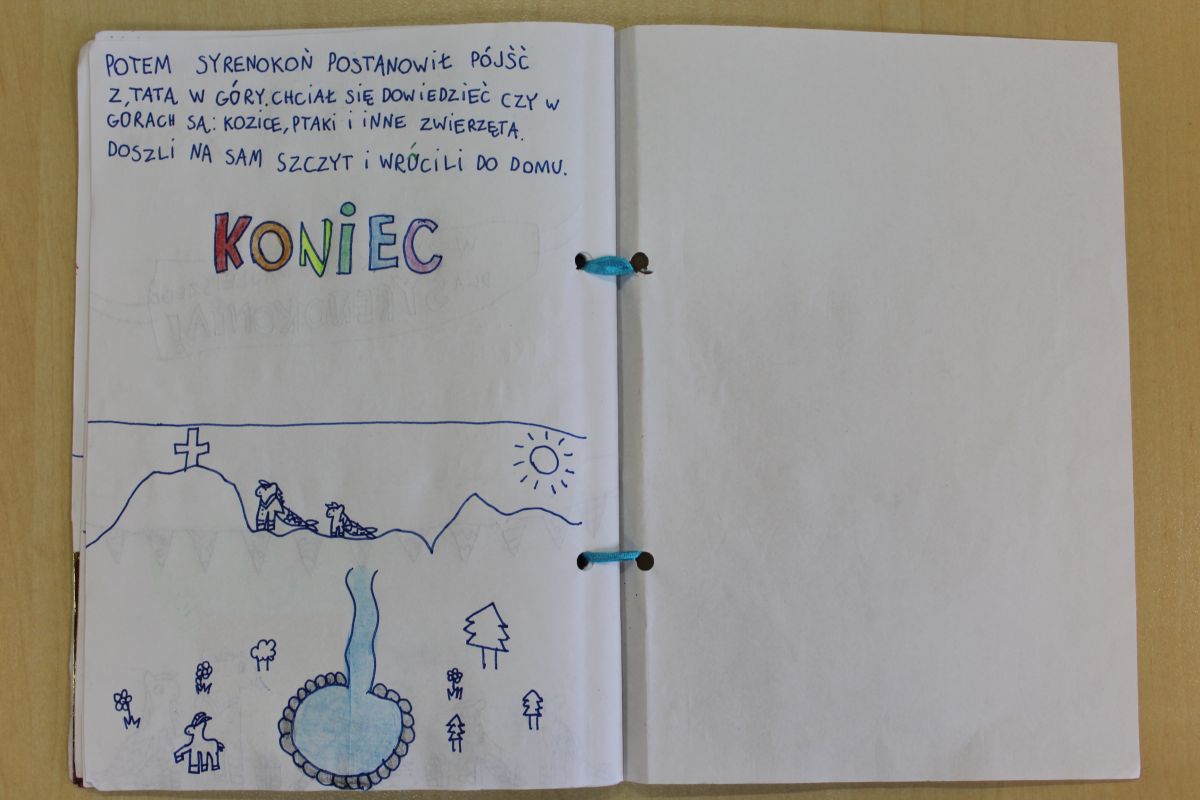 POTEM SYRENOKOŃ POSTANOWIŁ PÓJŚĆ
Z TATĄ W GÓRY. CHCIAŁ SIĘ DOWIEDZIEĆ CZY W
GÓRACH SĄ: KOZICE, PTAKI I INNE ZWIERZĘTA.
DOSZLI NA SAM SZCZYT I WRÓCILI DO DOMU.
KONIEC